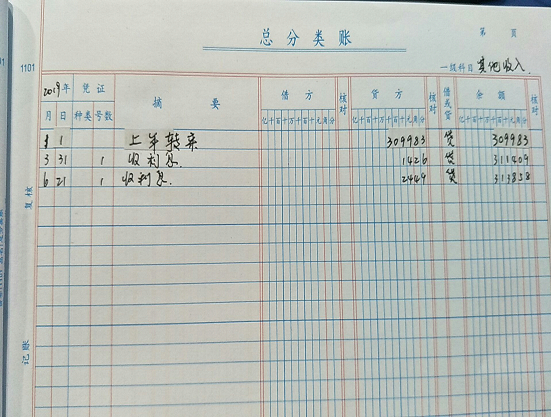 总分类账
第 页
1101
一级科目 其他收入
2019年 凭证 摘要 借方 核对 贷方 核对 借或贷 余额
月 日 种类 号数 亿千百十万千百十元角分 亿千百十万千百十元角分 亿千百十万千百十元角分
1 1 上年转 309983 贷 309983
3 31 1 收利息. 1426 贷 311409
6 21 1 收利息. 2449 贷 313858
复核
记账